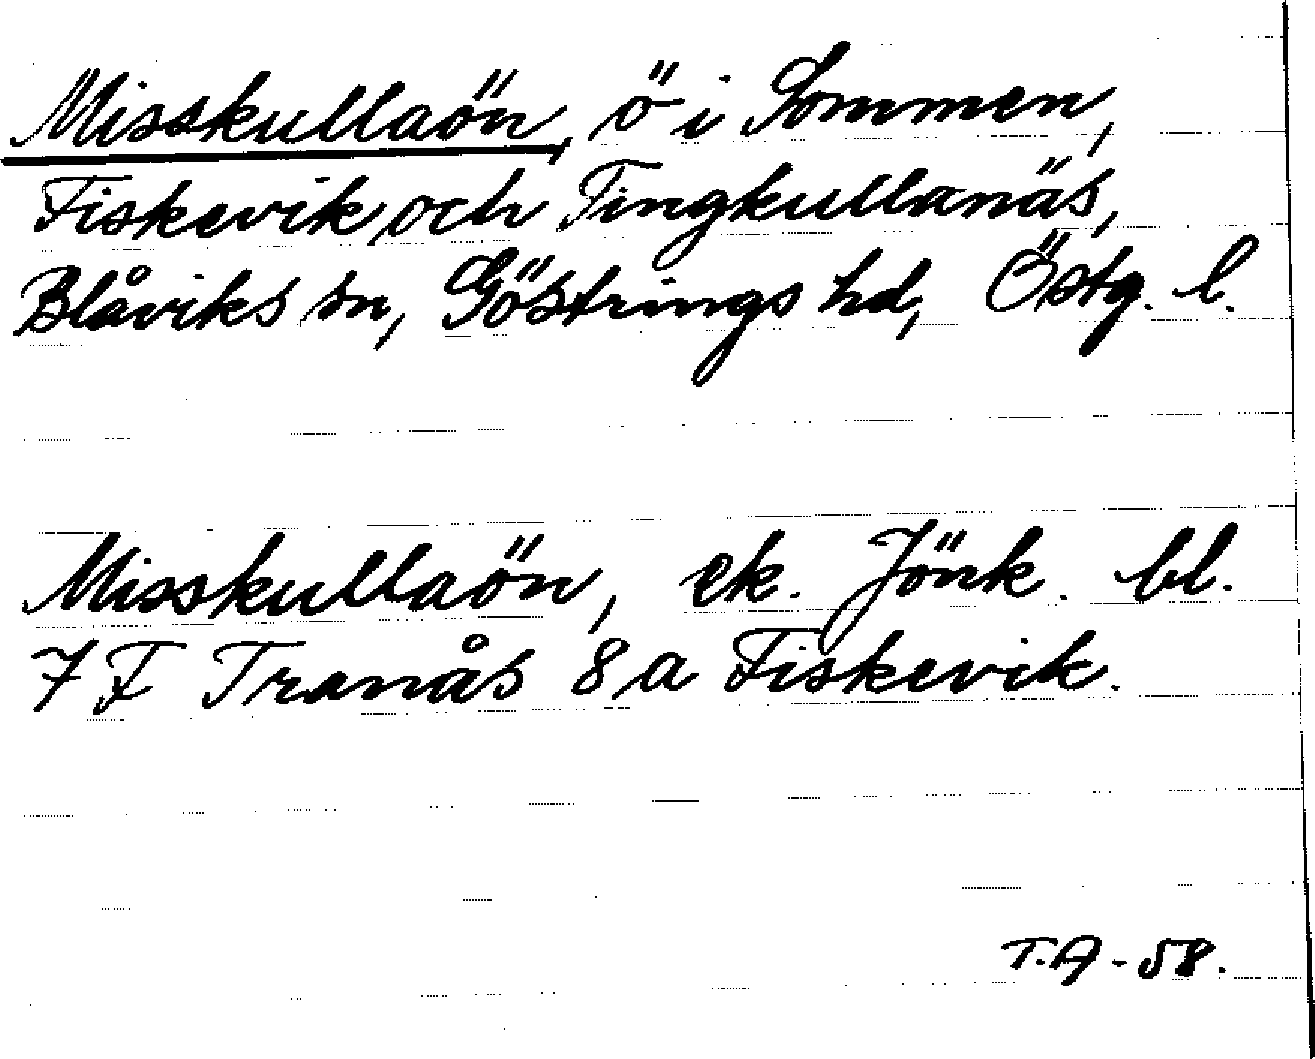 Misskullaön, ö i Sommen,
Fiskevik och Tingkullanäs,
Blåviks sn, Göstrings hd, Östg. l.
Misskullaön, ek. Jönk. bl.
7 F Tranås 8 a Fiskevik.
T.A - 58.